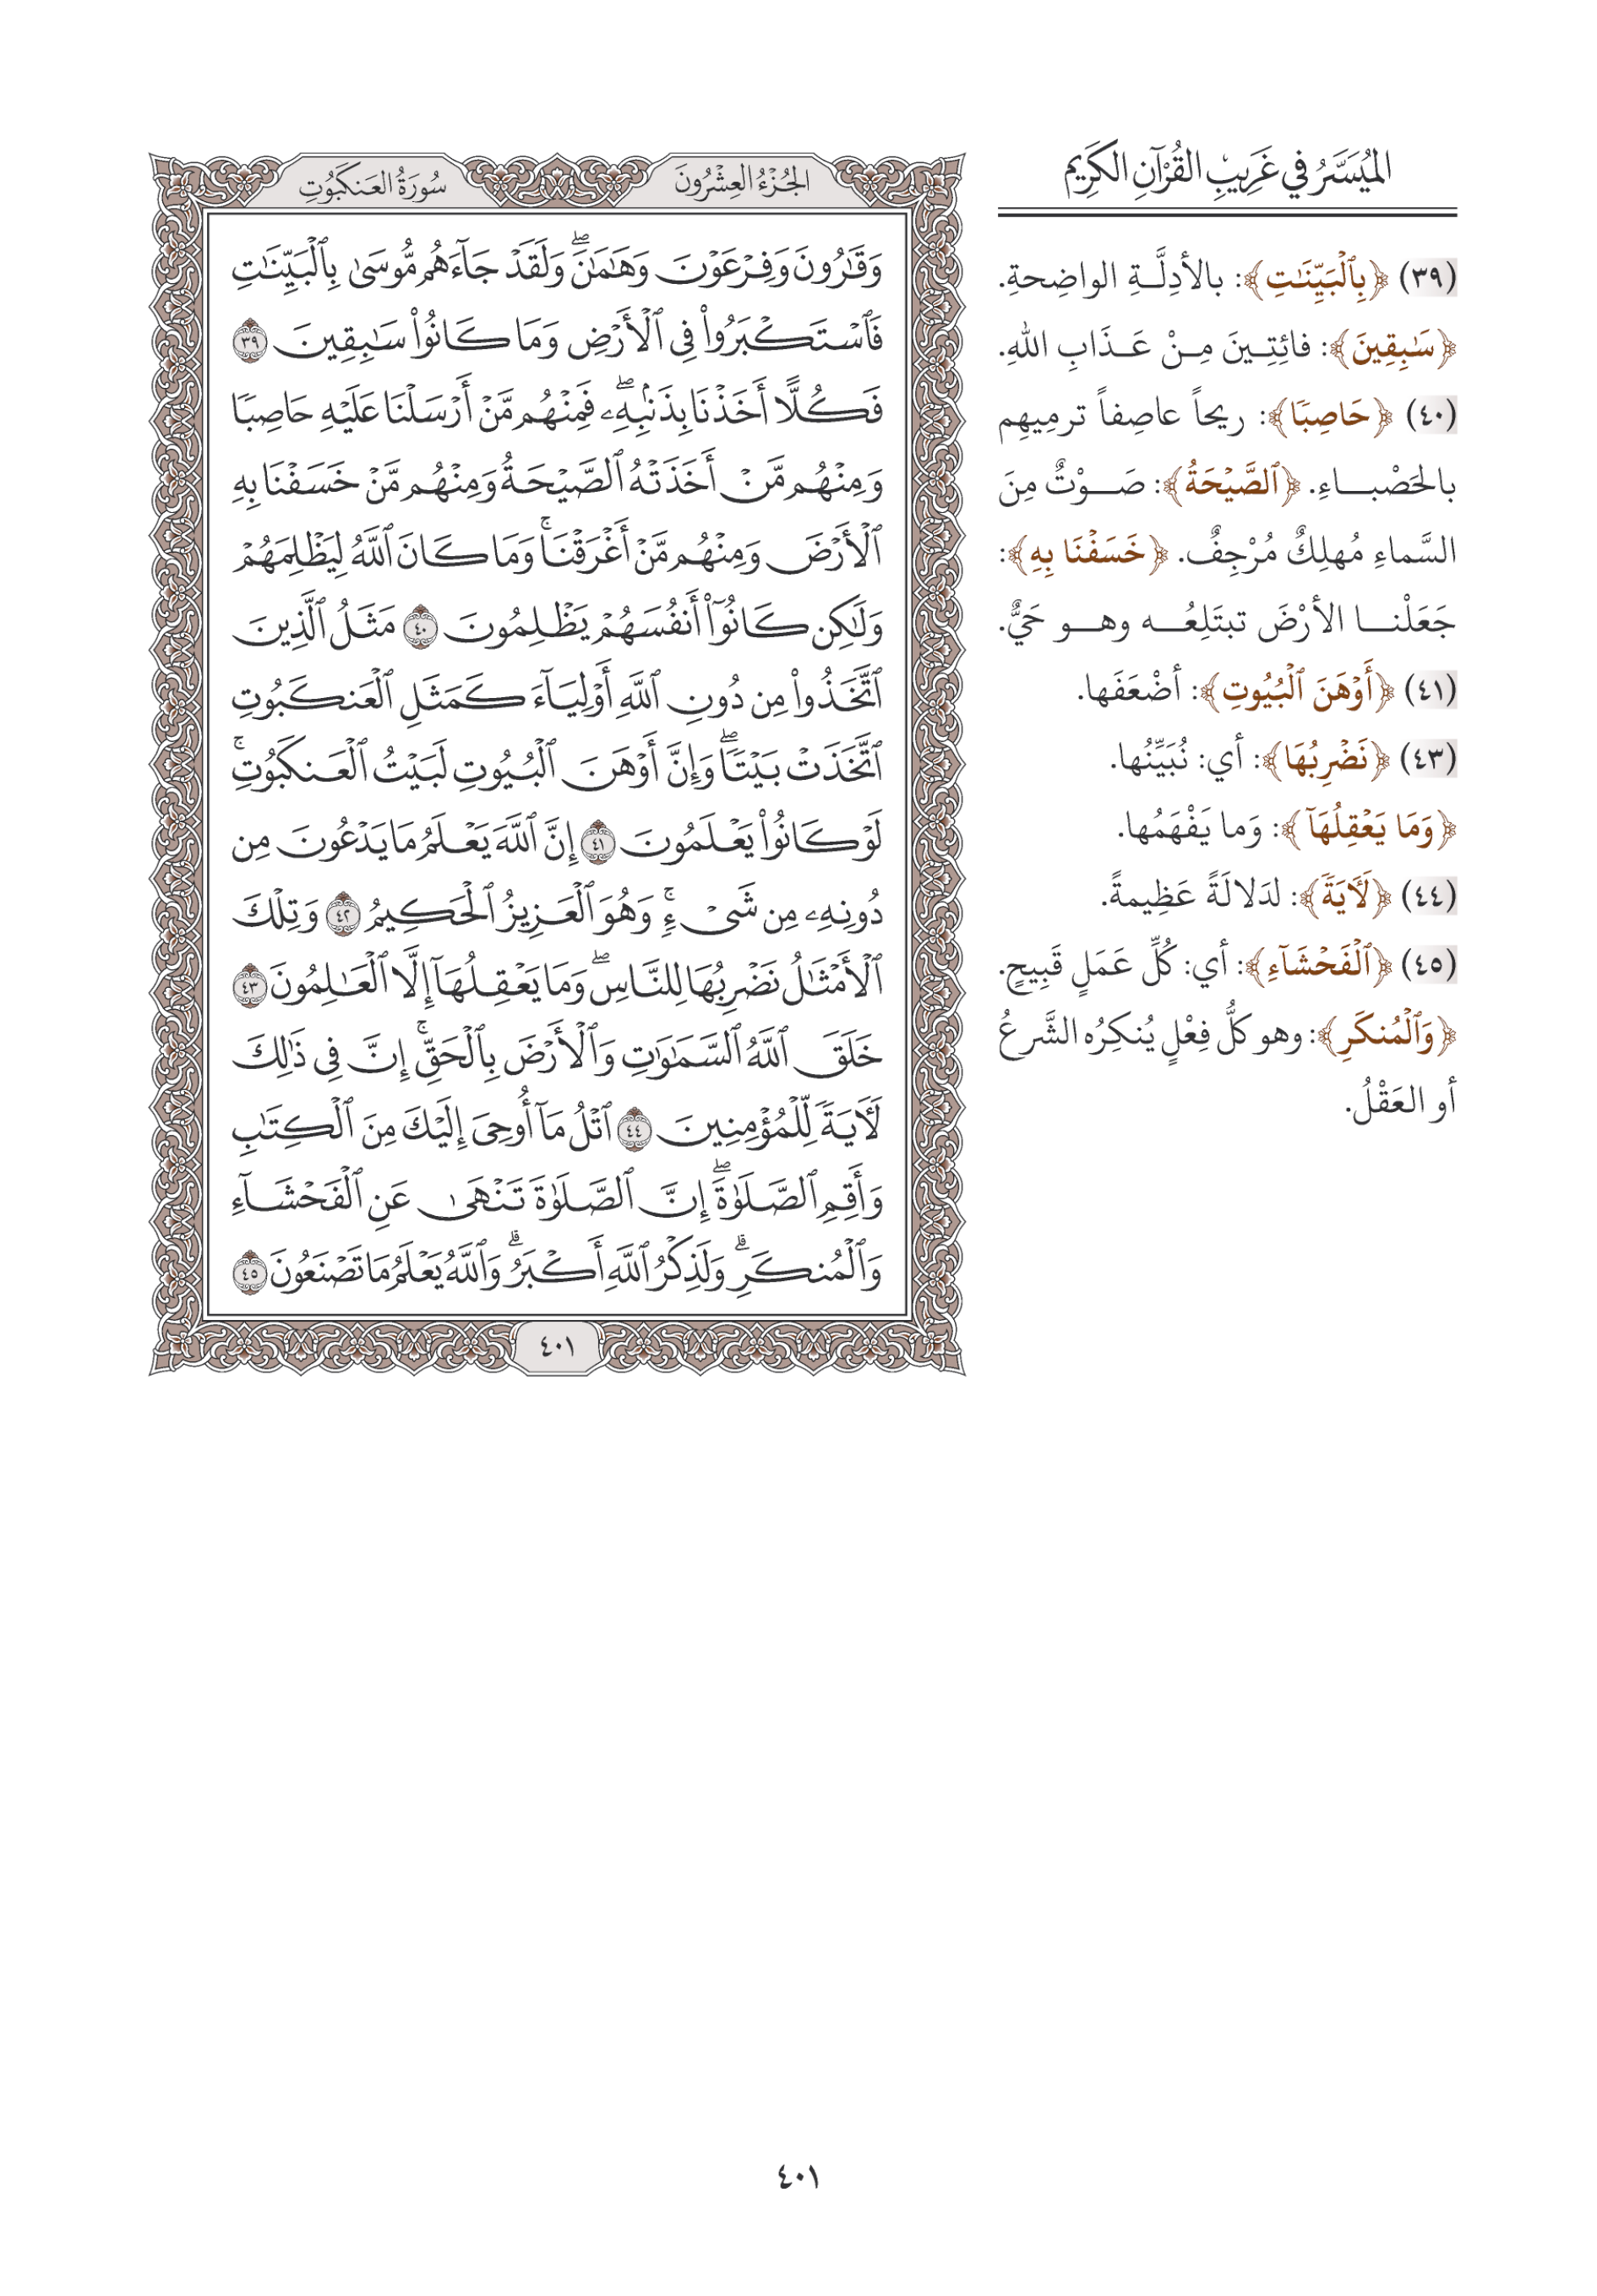 الميُسَّرُ في غَرِيبِ القُرْآنِ الكَرِيم
(٣٩) ﴿بِٱلْبَيِّنَٰتِ﴾: بالأدِلَّـةِ الواضِحةِ.
﴿سَٰبِقِينَ﴾: فائِتِـينَ مِـنْ عَـذَابِ اللهِ.
(٤٠) ﴿حَاصِبٗا﴾: ريحاً عاصِفاً ترمِيهِم
بالحَصْبـاءِ. ﴿ٱلصَّيْحَةُ﴾: صَـوْتٌ مِنَ
السَّماءِ مُهلِكٌ مُرْجِفٌ. ﴿خَسَفْنَا بِهِ﴾:
جَعَلْنـا الأرْضَ تبتَلِعُـه وهـو حَيٌّ.
(٤١) ﴿أَوْهَنَ ٱلْبُيُوتِ﴾: أضْعَفَها.
(٤٣) ﴿نَضْرِبُهَا﴾: أي: نُبَيِّنُها.
﴿وَمَا يَعْقِلُهَآ﴾: وَما يَفْهَمُها.
(٤٤) ﴿لَأٓيَةٗ﴾: لدَلالَةً عَظِيمةً.
(٤٥) ﴿ٱلْفَحْشَآءِ﴾: أي: كُلِّ عَمَلٍ قَبِيحٍ.
﴿وَٱلْمُنكَرِ﴾: وهو كلُّ فِعْلٍ يُنكِرُه الشَّرعُ
أو العَقْلُ.
الجُزْءُ العِشْرُونَ
سُورَةُ العَنكَبُوتِ
وَقَٰرُونَ وَفِرْعَوْنَ وَهَٰمَٰنَۖ وَلَقَدْ جَآءَهُم مُّوسَىٰ بِٱلْبَيِّنَٰتِ
فَٱسْتَكْبَرُوا۟ فِي ٱلْأَرْضِ وَمَا كَانُوا۟ سَٰبِقِينَ ٣٩
فَكُلًّا أَخَذْنَا بِذَنۢبِهِۦۖ فَمِنْهُم مَّنْ أَرْسَلْنَا عَلَيْهِ حَاصِبٗا
وَمِنْهُم مَّنْ أَخَذَتْهُ ٱلصَّيْحَةُ وَمِنْهُم مَّنْ خَسَفْنَا بِهِ
ٱلْأَرْضَ وَمِنْهُم مَّنْ أَغْرَقْنَاۚ وَمَا كَانَ ٱللَّهُ لِيَظْلِمَهُمْ
وَلَٰكِن كَانُوٓا۟ أَنفُسَهُمْ يَظْلِمُونَ ٤٠ مَثَلُ ٱلَّذِينَ
ٱتَّخَذُوا۟ مِن دُونِ ٱللَّهِ أَوْلِيَآءَ كَمَثَلِ ٱلْعَنكَبُوتِ
ٱتَّخَذَتْ بَيْتٗاۖ وَإِنَّ أَوْهَنَ ٱلْبُيُوتِ لَبَيْتُ ٱلْعَنكَبُوتِۚ
لَوْ كَانُوا۟ يَعْلَمُونَ ٤١ إِنَّ ٱللَّهَ يَعْلَمُ مَا يَدْعُونَ مِن
دُونِهِۦ مِن شَيْءٖۚ وَهُوَ ٱلْعَزِيزُ ٱلْحَكِيمُ ٤٢ وَتِلْكَ
ٱلْأَمْثَٰلُ نَضْرِبُهَا لِلنَّاسِۖ وَمَا يَعْقِلُهَآ إِلَّا ٱلْعَٰلِمُونَ ٤٣
خَلَقَ ٱللَّهُ ٱلسَّمَٰوَٰتِ وَٱلْأَرْضَ بِٱلْحَقِّۚ إِنَّ فِي ذَٰلِكَ
لَأٓيَةٗ لِّلْمُؤْمِنِينَ ٤٤ ٱتْلُ مَآ أُوحِيَ إِلَيْكَ مِنَ ٱلْكِتَٰبِ
وَأَقِمِ ٱلصَّلَوٰةَۖ إِنَّ ٱلصَّلَوٰةَ تَنْهَىٰ عَنِ ٱلْفَحْشَآءِ
وَٱلْمُنكَرِۗ وَلَذِكْرُ ٱللَّهِ أَكْبَرُۗ وَٱللَّهُ يَعْلَمُ مَا تَصْنَعُونَ ٤٥
٤٠١
٤٠١